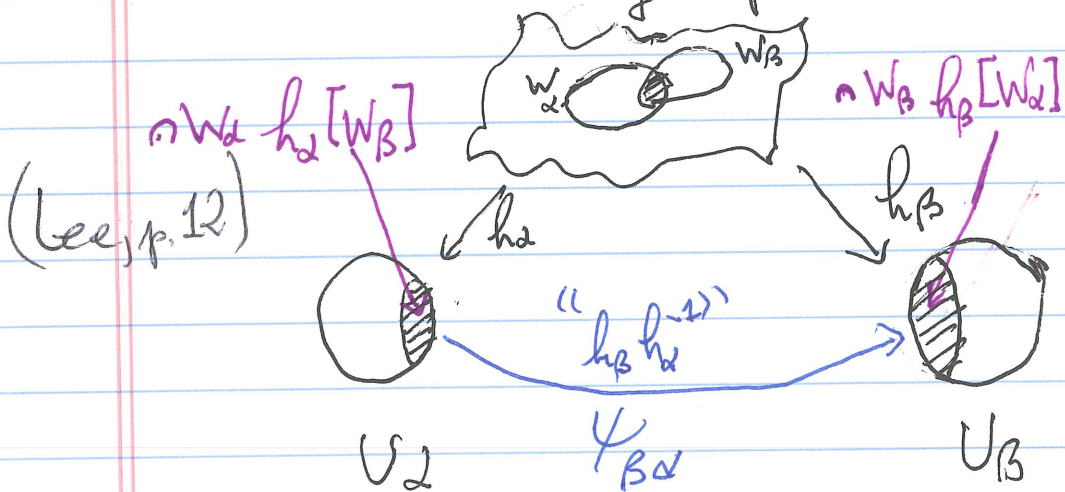 W_α W_β
∩ W_α h_α [W_β]
∩ W_β h_β [W_α]
(Lee, p. 12)
h_α h_β
"h_β h_α^{-1}"
ψ_{βα}
U_α U_β